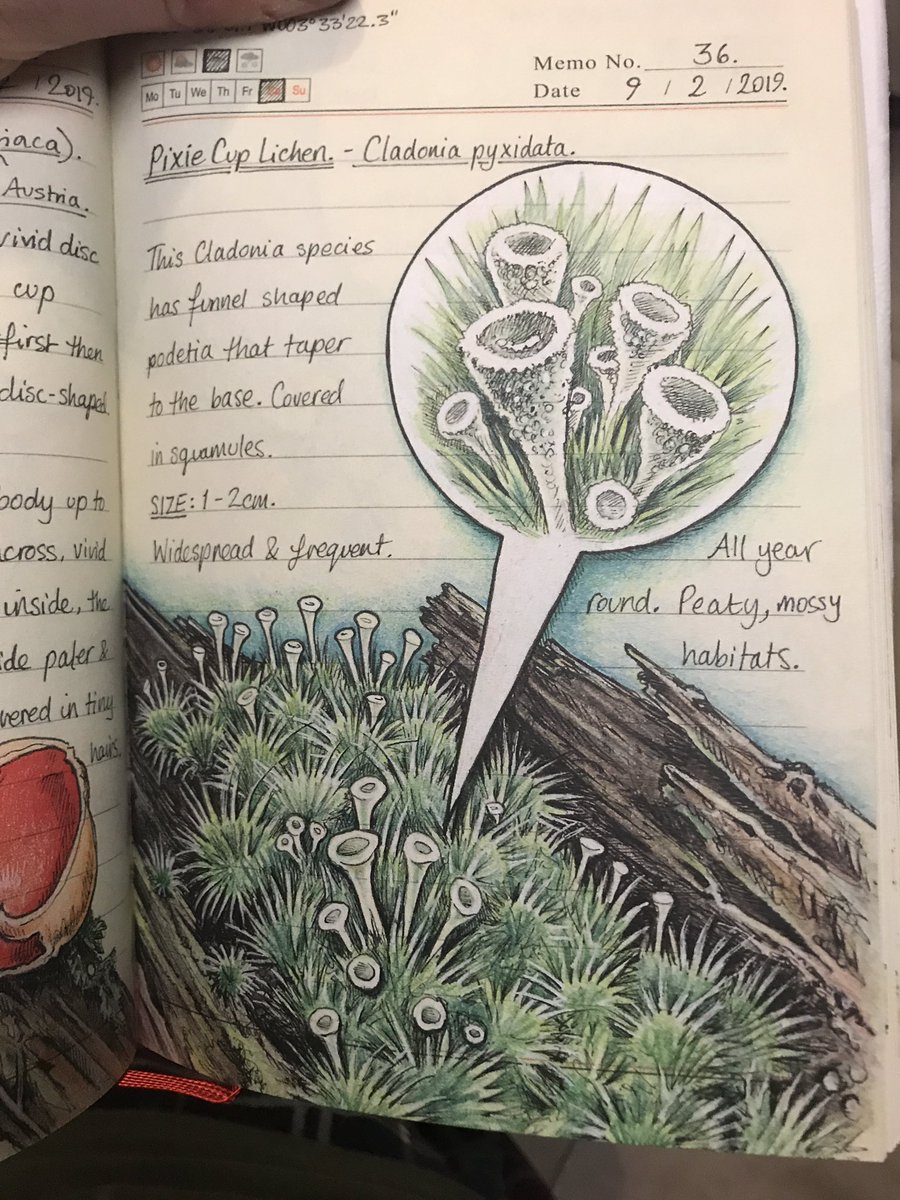 2 / 2019.
iaca).
Austria.
vivid disc
cup
first then
disc-shaped
body up to
across, vivid
inside, the
ide paler &
vered in tiny
hairs.
W003°33'22.3"
Memo No. 36.
Mo Tu We Th Fr Su
Date 9 / 2 / 2019.
Pixie Cup Lichen. - Cladonia pyxidata.
This Cladonia species
has funnel shaped
podetia that taper
to the base. Covered
in squamules.
SIZE: 1-2cm.
Widespread & frequent.
All year
round. Peaty, mossy
habitats.